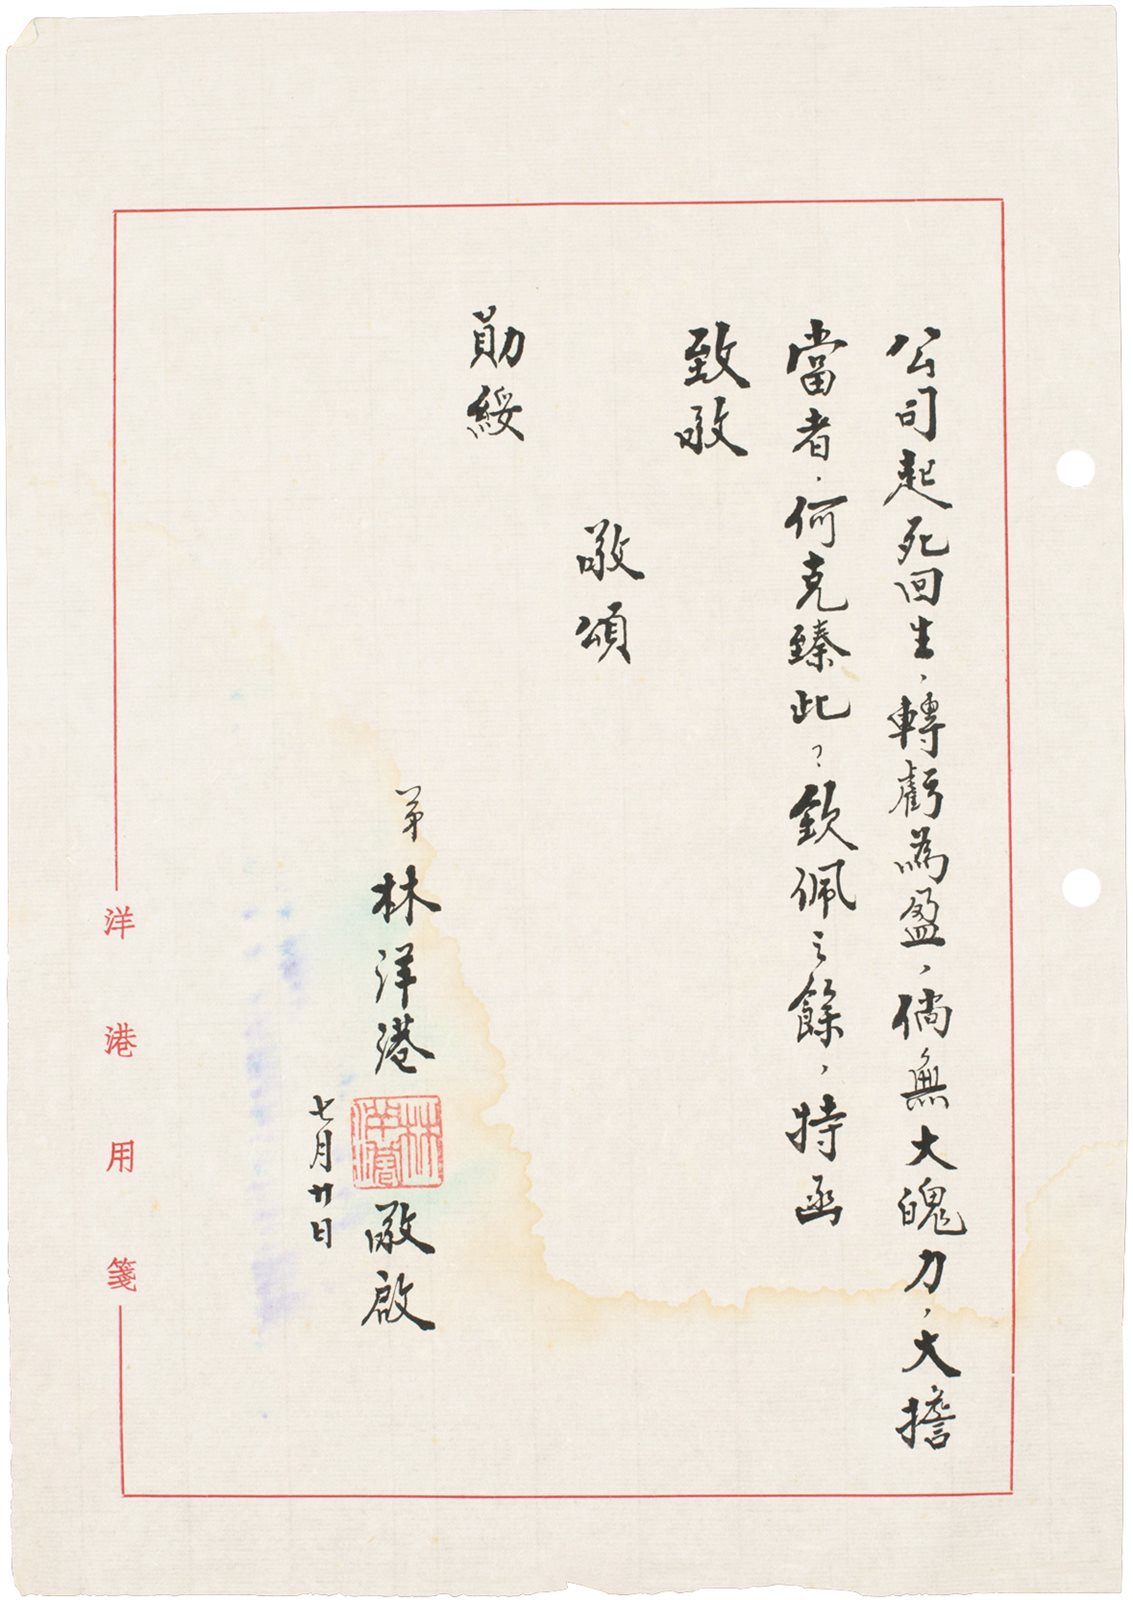 公司起死回生,轉虧為盈,倘無大魄力,大擔
當者,何克臻此?欽佩之餘,特函
致敬
敬頌
勛綏
弟林洋港敬啟
七月廿日
洋港用箋